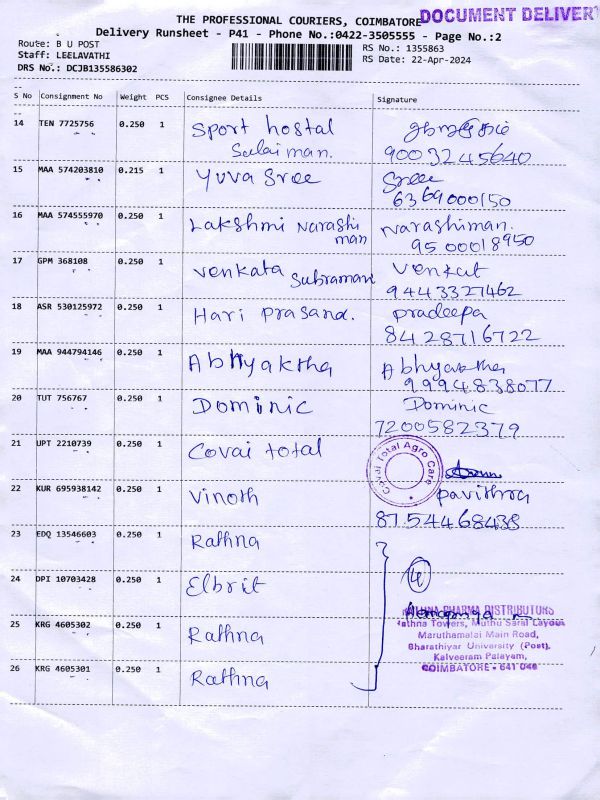 THE PROFESSIONAL COURIERS, COIMBATORE DOCUMENT DELIVER
Delivery Runsheet - P41 - Phone No.:0422-3505555 - Page No.:2
Route: B U POST
Staff: LEELAVATHI
DRS No.: DCJB135586302
RS No.: 1355863
RS Date: 22-Apr-2024
S No Consignment No Weight PCS Consignee Details Signature
14 TEN 7725756 0.250 1 Sport hostal
Sulaiman. 9003245640
15 MAA 574203810 0.215 1 Yuva Sree Sree
6369000150
16 MAA 574555970 0.250 1 Lakshmi Narashi Narashiman.
man 9500018950
17 GPM 368108 0.250 1 Venkata Subramani Venkat
9443327462
18 ASR 530125972 0.250 1 Hari Prasand. Pradeepa
8428716722
19 MAA 944794146 0.250 1 Abhyaktha Abhyaktha
9994838077
20 TUT 756767 0.250 1 Dominic Dominic
7200582379
21 UPT 2210739 0.250 1 Covai total Covai Total Agro Care
22 KUR 695938142 0.250 1 Vinoth Pavithra
8754468438
23 EDQ 13546603 0.250 1 Rathna
24 DPI 10703428 0.250 1 Elbrit
25 KRG 4605302 0.250 1 Rathna
26 KRG 4605301 0.250 1 Rathna
PHARMA DISTRIBUTORS
Towers, Muthu Saral Layout
Maruthamalai Main Road,
Bharathiyar University (Post),
Kalveeram Palayam,
COIMBATORE - 641 046